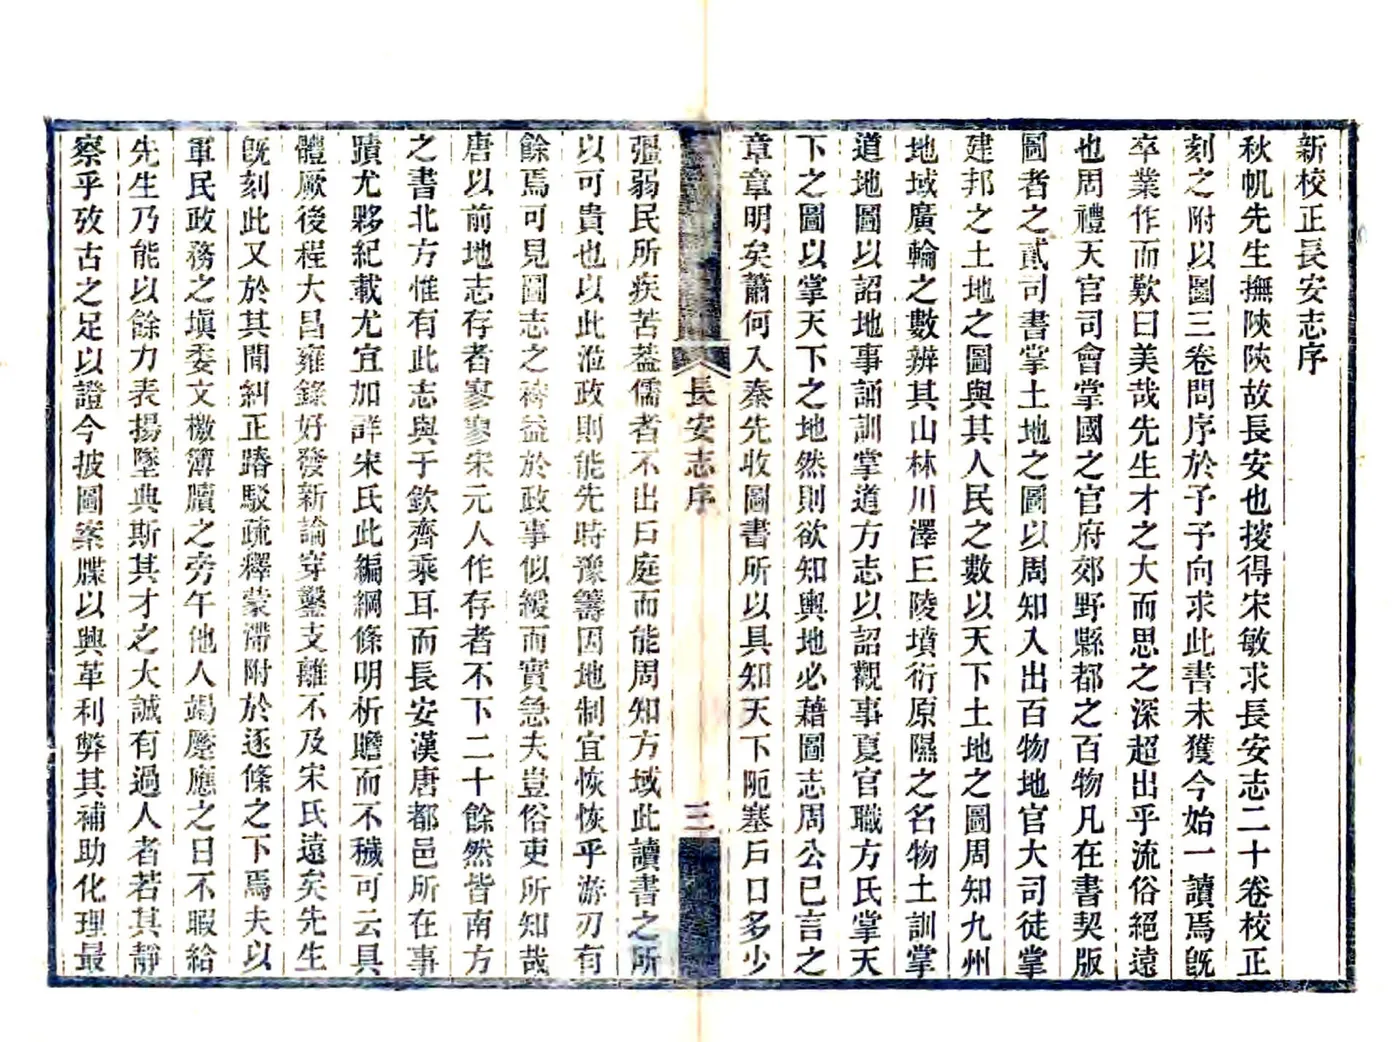 新校正長安志序
秋帆先生撫陝陝故長安也授得宋敏求長安志二十卷校正
刻之附以圖三卷問序於予予向求此書未獲今始一讀焉旣
卒業作而歎曰美哉先生才之大而思之深超出乎流俗絕遠
也周禮天官司會掌國之官府郊野縣都之百物凡在書契版
圖者之貳司書掌土地之圖以周知入出百物地官大司徒掌
建邦之土地之圖與其人民之數以天下土地之圖周知九州
地域廣輪之數辨其山林川澤丘陵墳衍原隰之名物土訓掌
道地圖以詔地事誦訓掌道方志以詔觀事夏官職方氏掌天
下之圖以掌天下之地然則欲知輿地必藉圖志周公已言之
章章明矣蕭何入秦先收圖書所以具知天下阨塞戶口多少
長安志序
三
彊弱民所疾苦葢儒者不出戶庭而能周知方域此讀書之所
以可貴也以此涖政則能先時豫籌因地制宜恢恢乎游刃有
餘焉可見圖志之裨益於政事似緩而實急夫豈俗吏所知哉
唐以前地志存者寥寥宋元人作存者不下二十餘然皆南方
之書北方惟有此志與于欽齊乘耳而長安漢唐都邑所在事
蹟尤夥紀載尤宜加詳宋氏此編綱條明析贍而不穢可云具
體厥後程大昌雍錄好發新論穿鑿支離不及宋氏遠矣先生
旣刻此又於其閒糾正踳駁疏釋蒙滯附於逐條之下焉夫以
軍民政務之塡委文檄簿牘之旁午他人竭蹷應之日不暇給
先生乃能以餘力表揚墜典斯其才之大誠有過人者若其靜
察乎攷古之足以證今披圖案牒以興革利弊其補助化理最